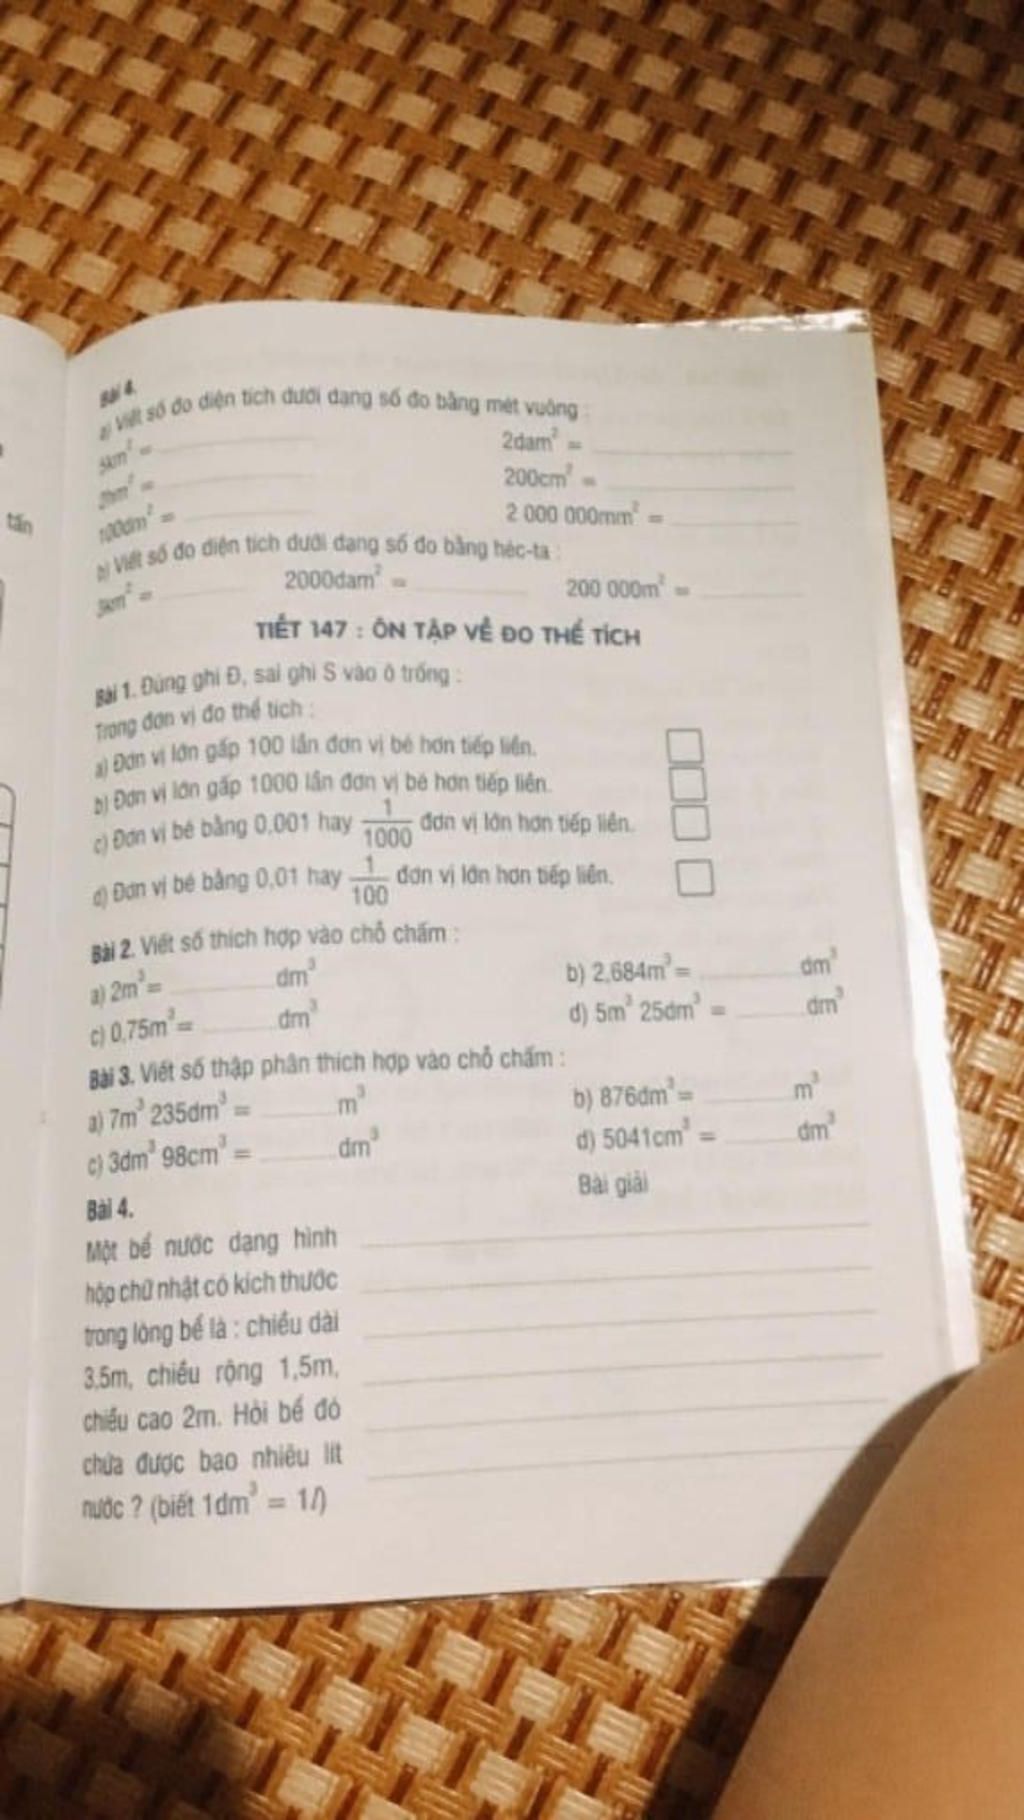 tấn
Bài 4.
a) Viết số đo diện tích dưới dạng số đo bằng mét vuông :
5km² = ______ 2dam² = ______
2hm² = ______ 200cm² = ______
100dm² = ______ 2 000 000mm² = ______
b) Viết số đo diện tích dưới dạng số đo bằng héc-ta :
3km² = ______ 2000dam² = ______ 200 000m² = ______
TIẾT 147 : ÔN TẬP VỀ ĐO THỂ TÍCH
Bài 1. Đúng ghi Đ, sai ghi S vào ô trống :
Trong đơn vị đo thể tích :
a) Đơn vị lớn gấp 100 lần đơn vị bé hơn tiếp liền.
b) Đơn vị lớn gấp 1000 lần đơn vị bé hơn tiếp liền.
c) Đơn vị bé bằng 0,001 hay 1/1000 đơn vị lớn hơn tiếp liền.
d) Đơn vị bé bằng 0,01 hay 1/100 đơn vị lớn hơn tiếp liền.
Bài 2. Viết số thích hợp vào chỗ chấm :
a) 2m³ = ______ dm³ b) 2,684m³ = ______ dm³
c) 0,75m³ = ______ dm³ d) 5m³ 25dm³ = ______ dm³
Bài 3. Viết số thập phân thích hợp vào chỗ chấm :
a) 7m³ 235dm³ = ______ m³ b) 876dm³ = ______ m³
c) 3dm³ 98cm³ = ______ dm³ d) 5041cm³ = ______ dm³
Bài 4. Bài giải
Một bể nước dạng hình
hộp chữ nhật có kích thước
trong lòng bể là : chiều dài
3,5m, chiều rộng 1,5m,
chiều cao 2m. Hỏi bể đó
chứa được bao nhiêu lít
nước ? (biết 1dm³ = 1l)